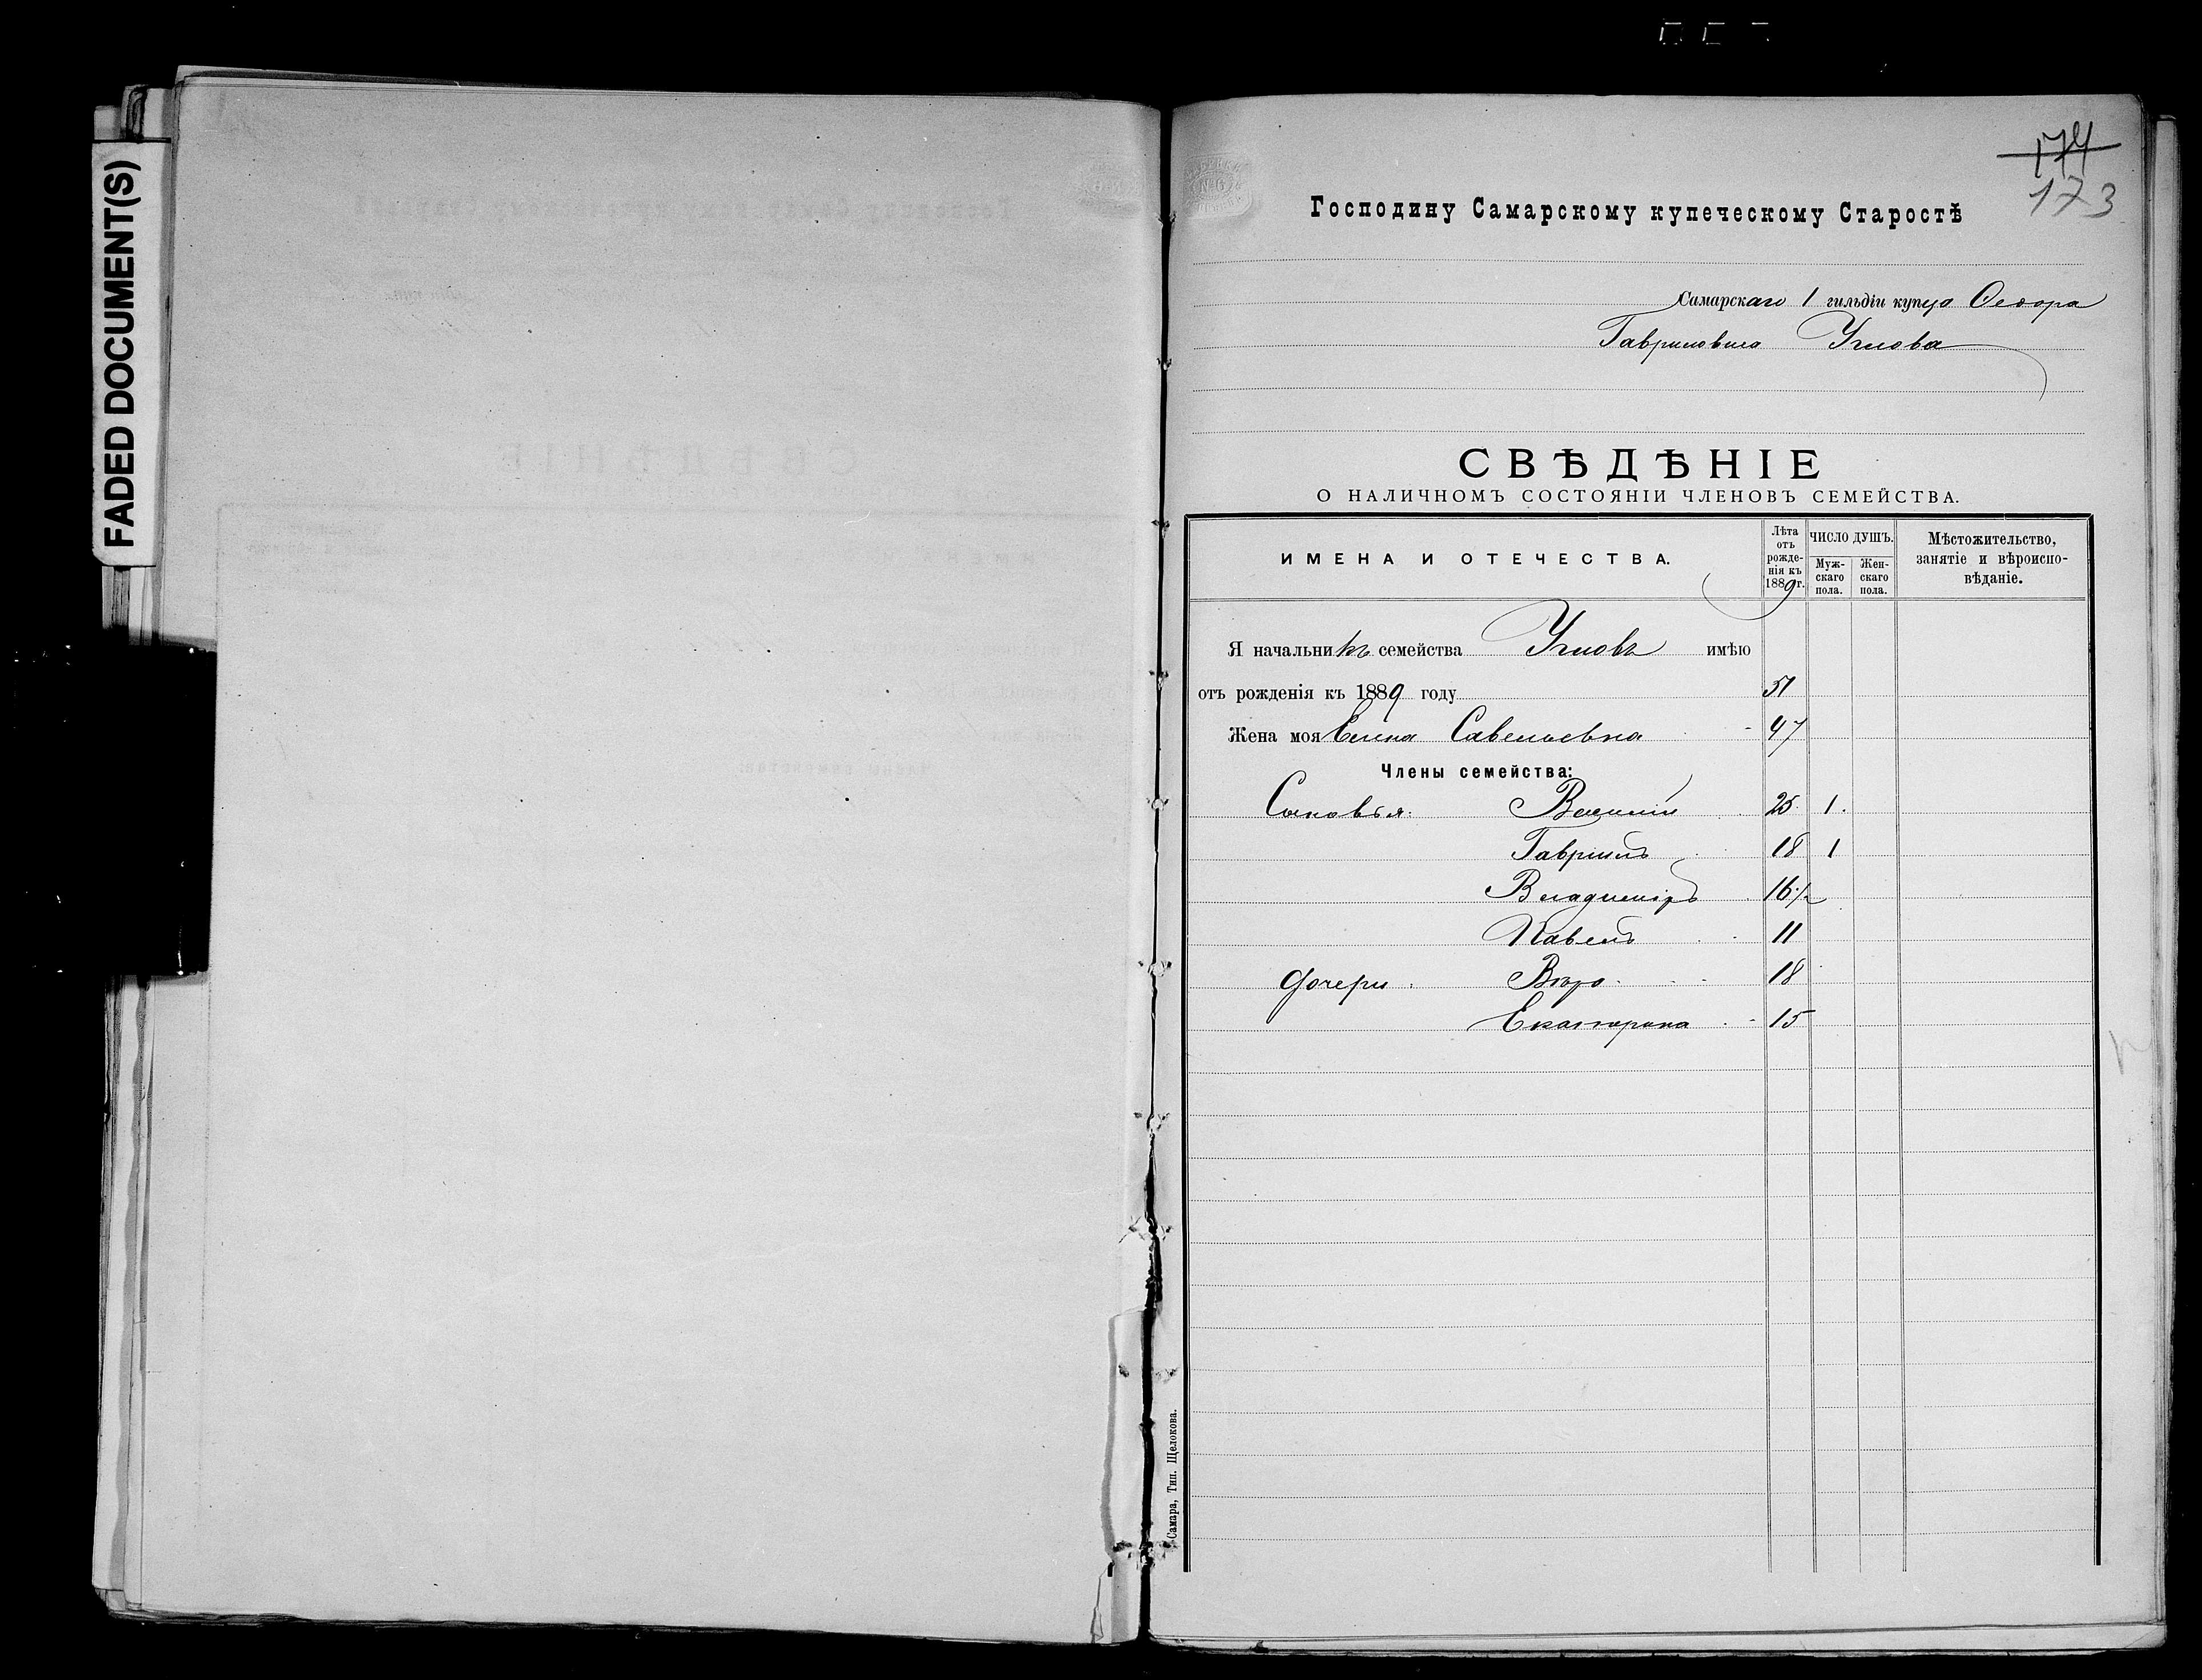 FADED DOCUMENT(S)
174
173
Господину Самарскому купеческому Старостѣ
Самарскаго 1 гильдіи купца Ѳедора
Гавриловича Углова
СВѢДѢНІЕ
О НАЛИЧНОМЪ СОСТОЯНІИ ЧЛЕНОВЪ СЕМЕЙСТВА.
ИМЕНА И ОТЕЧЕСТВА.
Лѣта отъ рожденія къ 1889 г.
ЧИСЛО ДУШЪ.
Мужскаго пола.
Женскаго пола.
Мѣстожительство, занятіе и вѣроисповѣданіе.
Я начальникъ семейства Угловъ имѣю
отъ рожденія къ 1889 году 51
Жена моя Елена Савельевна 47
Члены семейства:
Сыновья. Василій 25 1.
Гавріилъ 18 1
Владиміръ 16 1/2
Павелъ 11
Дочери. Вѣра 18
Екатерина 15
Самара, Тип. Щелокова.